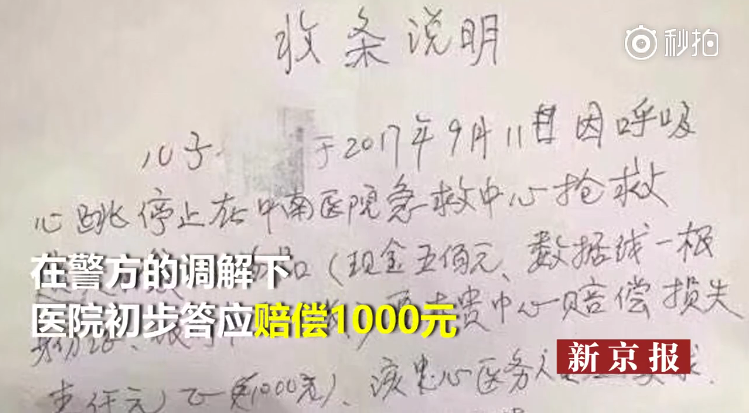 秒拍
收条说明
儿子 于2017年9月11日因呼吸
心跳停止在中南医院急救中心抢救
品(现金五佰元、数据线一根
在警方的调解下
医院初步答应赔偿1000元
贵中心赔偿损失
新京报
1000元)、该中心医务人